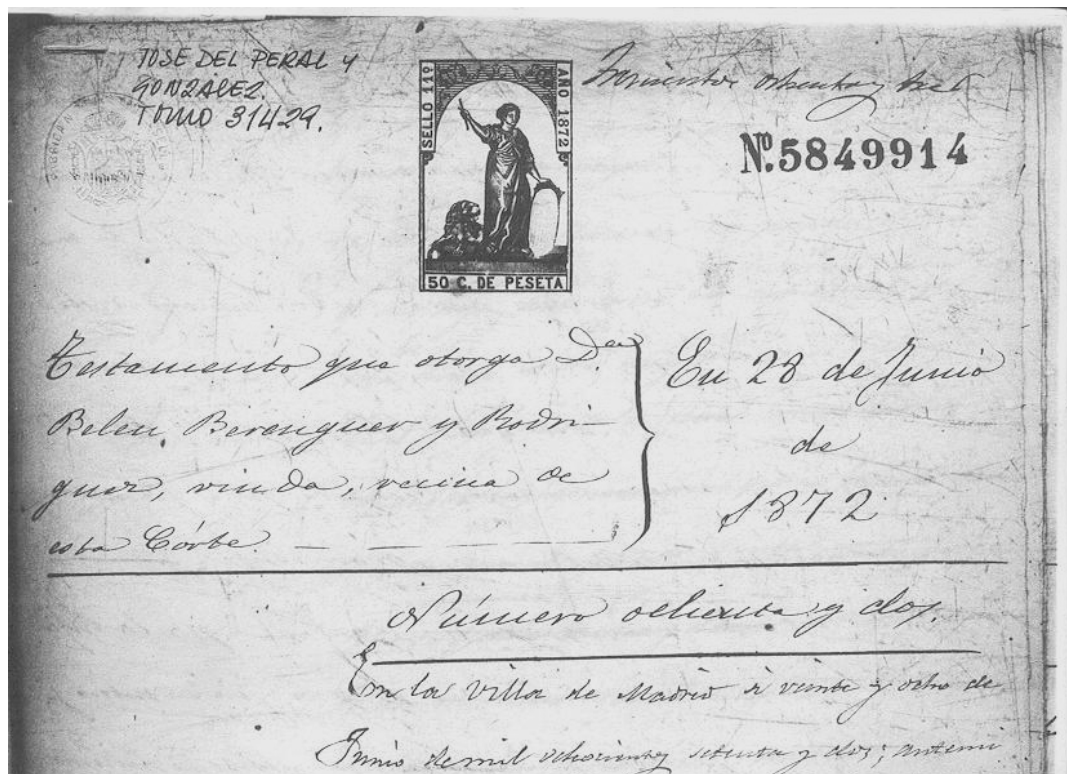 JOSE DEL PERAL Y
GONZALEZ
TOMO 31429.
SELLO 11º
AÑO 1872
50 C. DE PESETA
Trescientos ochenta y tres
Nº. 5849914
Testamento que otorga Dª
Belen Berenguer y Rodri-
guez, viuda, vecina de
esta Córte.
En 28 de Junio
de
1872
Número ochenta y dos.
En la Villa de Madrid á veinte y ocho de
Junio de mil ochocientos setenta y dos; ante mi